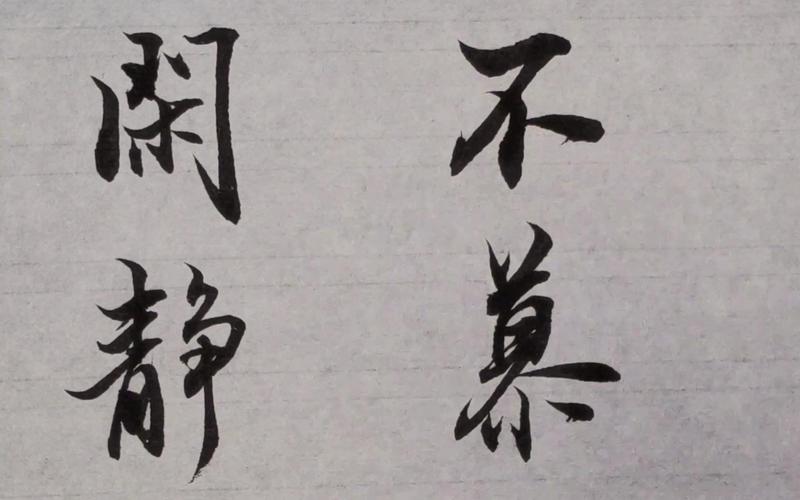 不慕
閑静